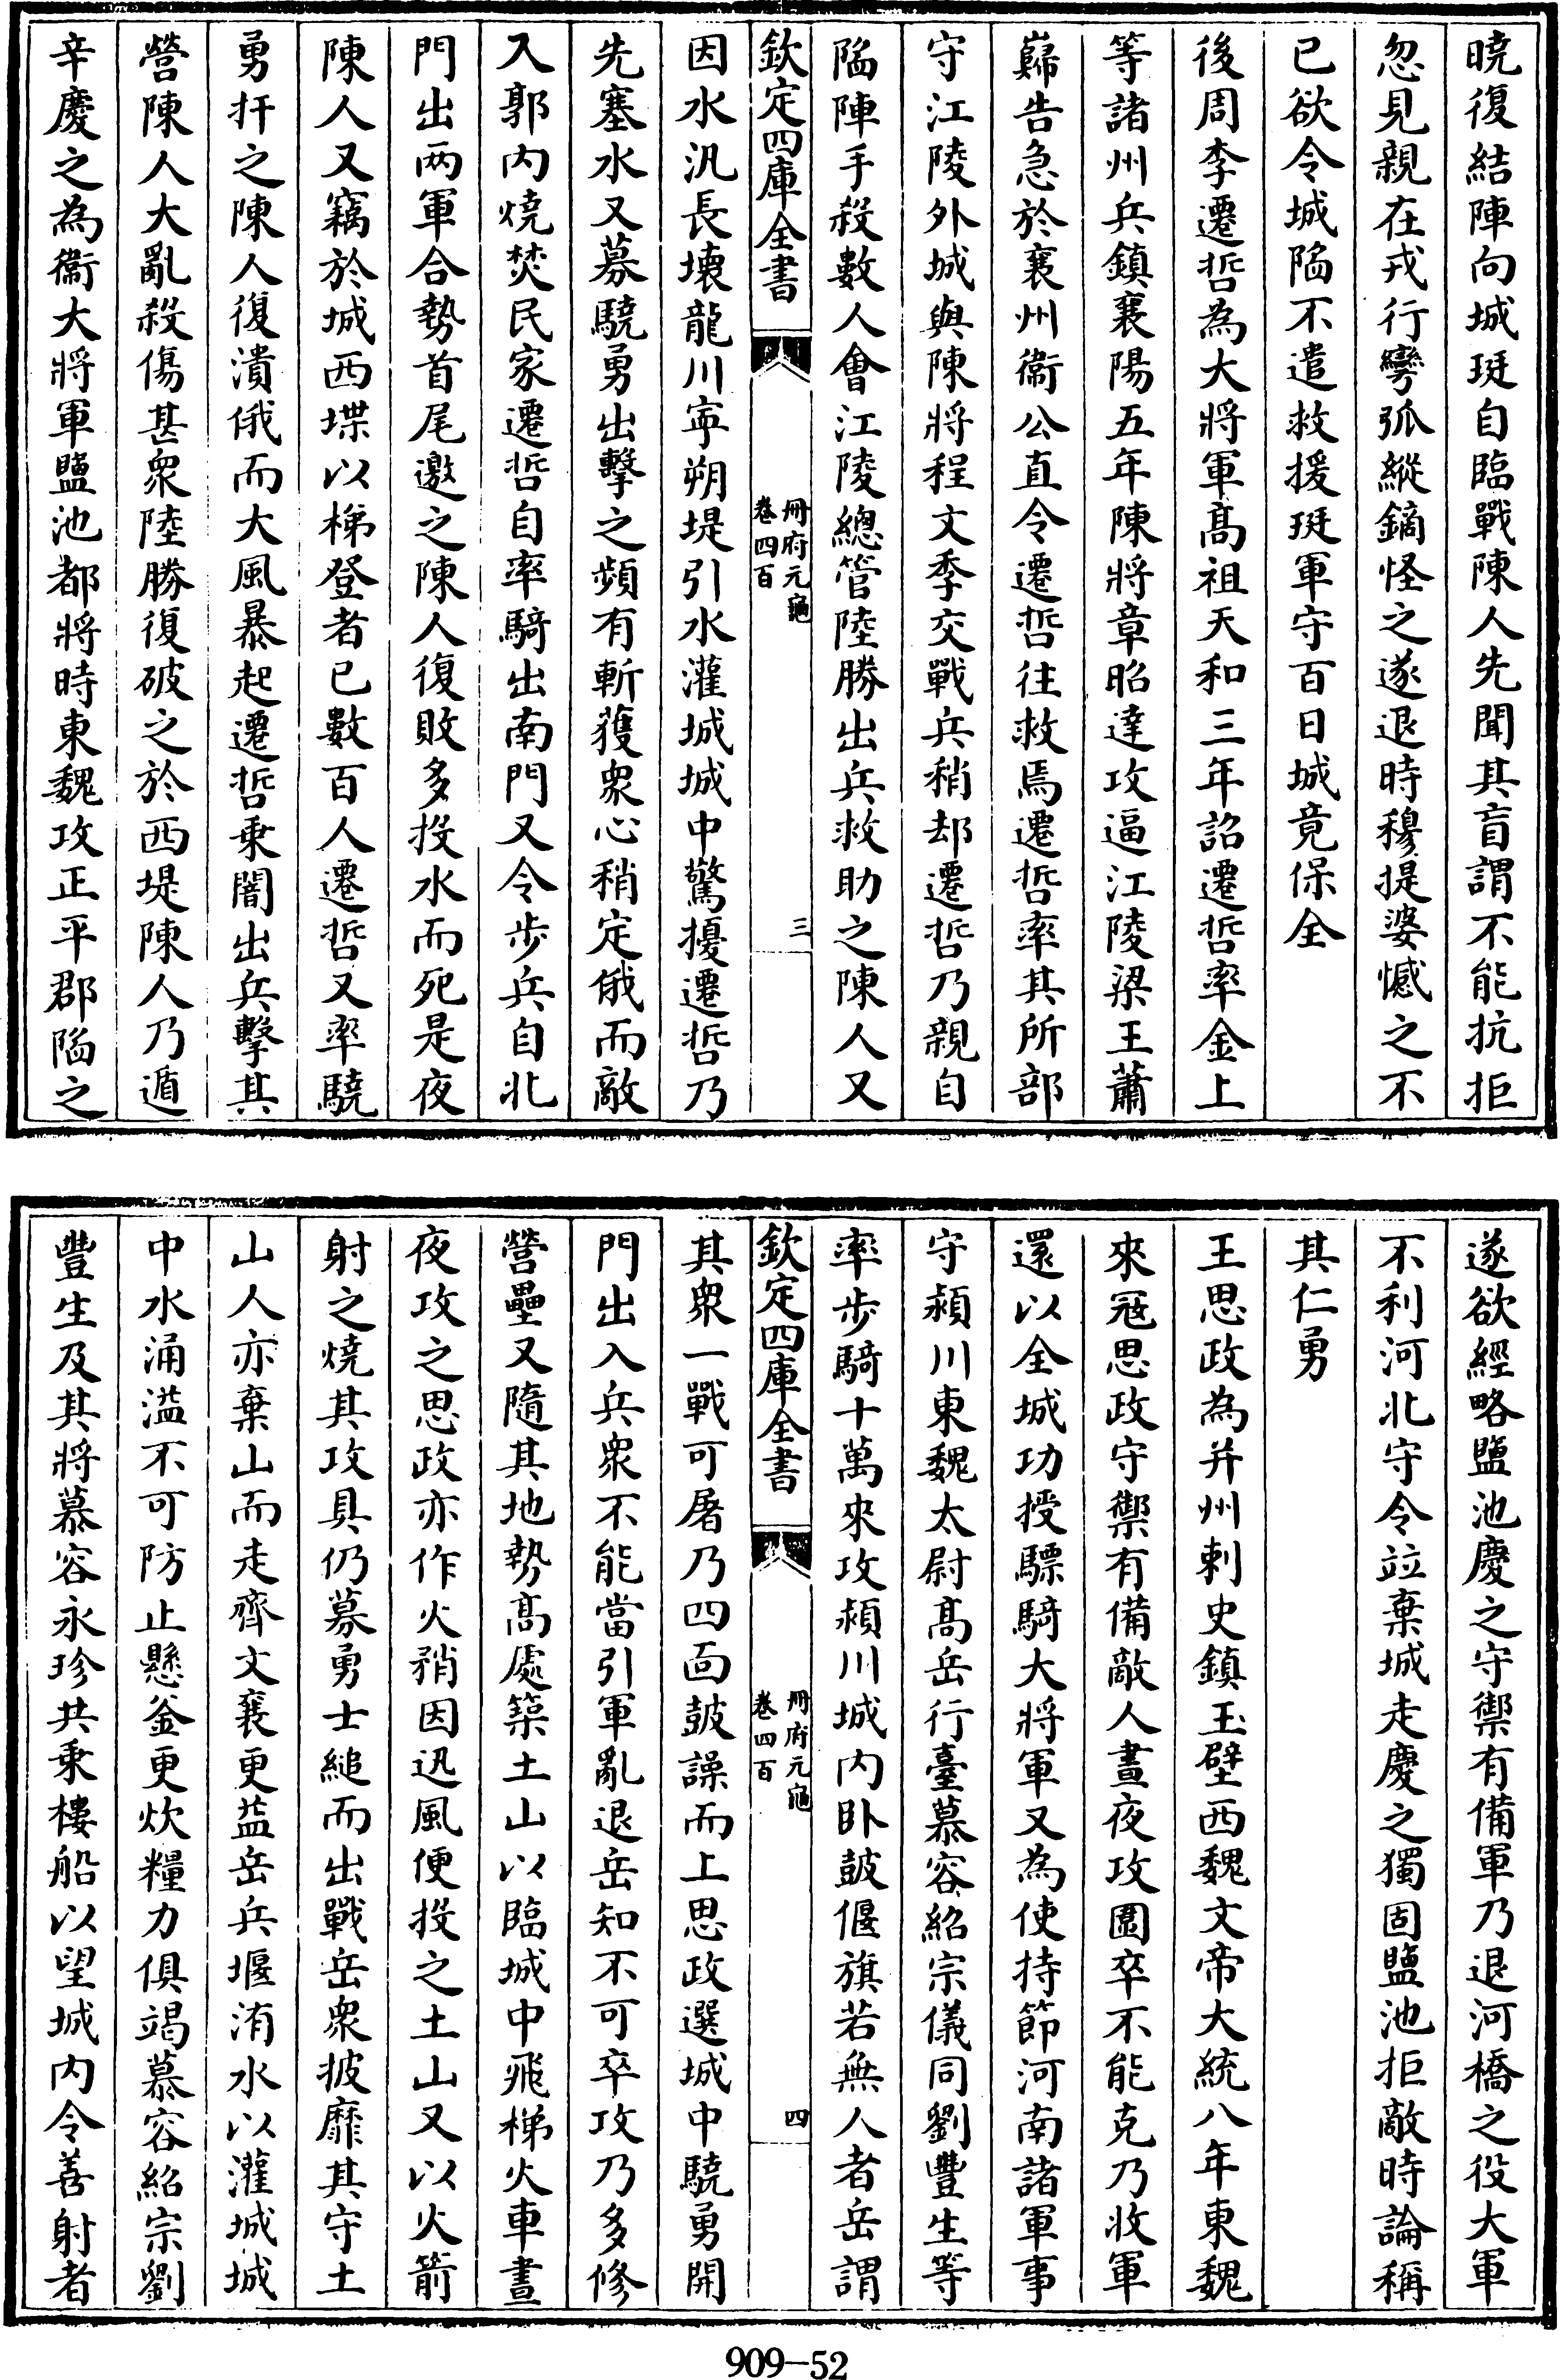 曉復結陣向城珽自臨戰陳人先聞其盲謂不能抗拒
忽見親在戎行彎弧縱鏑怪之遂退時穆提婆憾之不
已欲令城陷不遣救援珽軍守百日城竟保全
後周李遷哲為大將軍髙祖天和三年詔遷哲率金上
等諸州兵鎮襄陽五年陳將章昭達攻逼江陵梁王蕭
巋告急於襄州衞公直令遷哲往救焉遷哲率其所部
守江陵外城與陳將程文季交戰兵稍却遷哲乃親自
陷陣手殺數人會江陵總管陸勝出兵救助之陳人又
欽定四庫全書
冊府元龜
卷四百
三
因水汎長壞龍川寧朔堤引水灌城城中驚擾遷哲乃
先塞水又募驍勇出擊之頻有斬獲衆心稍定俄而敵
入郭内燒焚民家遷哲自率騎出南門又令步兵自北
門出兩軍合勢首尾邀之陳人復敗多投水而死是夜
陳人又竊於城西堞以梯登者已數百人遷哲又率驍
勇扞之陳人復潰俄而大風暴起遷哲乘闇出兵擊其
營陳人大亂殺傷甚衆陸勝復破之於西堤陳人乃遁
辛慶之為衞大將軍鹽池都將時東魏攻正平郡陷之
遂欲經略鹽池慶之守禦有備軍乃退河橋之役大軍
不利河北守令竝棄城走慶之獨固鹽池拒敵時論稱
其仁勇
王思政為并州刺史鎮玉壁西魏文帝大統八年東魏
來冦思政守禦有備敵人晝夜攻圍卒不能克乃收軍
還以全城功授驃騎大將軍又為使持節河南諸軍事
守潁川東魏太尉髙岳行臺慕容紹宗儀同劉豐生等
率步騎十萬來攻潁川城内卧皷偃旗若無人者岳謂
欽定四庫全書
冊府元龜
卷四百
四
其衆一戰可屠乃四面皷譟而上思政選城中驍勇開
門出入兵衆不能當引軍亂退岳知不可卒攻乃多修
營壘又隨其地勢髙處築土山以臨城中飛梯火車晝
夜攻之思政亦作火䂎因迅風便投之土山又以火箭
射之燒其攻具仍募勇士縋而出戰岳衆披靡其守土
山人亦棄山而走齊文襄更益岳兵堰洧水以灌城城
中水涌溢不可防止懸釜更炊糧力俱竭慕容紹宗劉
豐生及其將慕容永珍共乘樓船以望城内令善射者
909-52